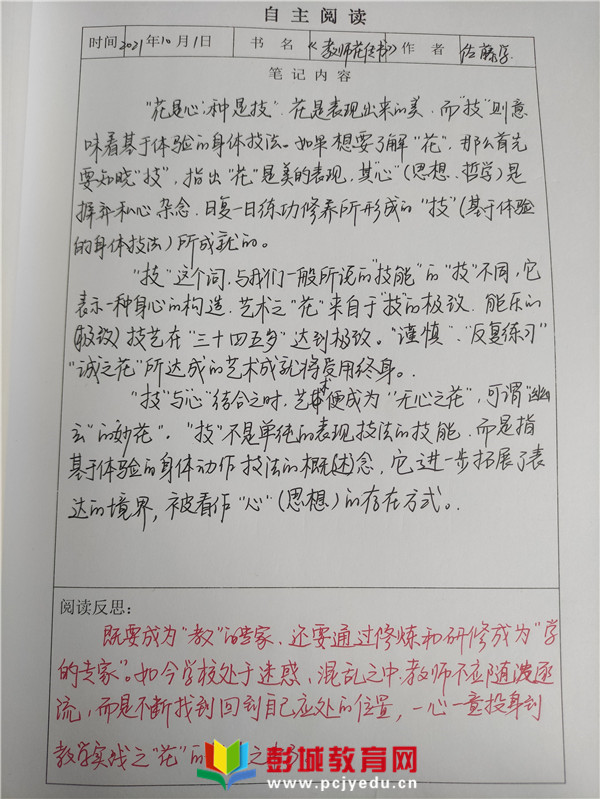 自主阅读
时间 2021年10月1日 书名 《教师花传书》 作者 佐藤学
笔记内容
"花是心,种是技"。花是表现出来的美,而"技"则意
味着基于体验的身体技法。如果想要了解"花",那么首先
要知晓"技",指出"花"是美的表现,其"心"(思想、哲学)是
摒弃私心杂念,日复一日练功修养所形成的"技"(基于体验
的身体技法)所成就的。
"技"这个词,与我们一般所说的"技能"的"技"不同,它
表示一种身心的构造,艺术之"花"来自于"技"的极致,能乐的
(极致)技艺在"三十四五岁"达到极致。"谨慎"、"反复练习"
"诚之花"所达成的艺术成就将受用终身。
"技"与"心"结合之时,艺术便成为"无心之花",可谓"幽
玄"的妙花"。"技"不是单纯的表现技法的技能,而是指
基于体验的身体动作技法的概(述)念,它进一步拓展了表
达的境界,被看作"心"(思想)的存在方式。
阅读反思:
既要成为"教"的专家,还要通过修炼和研修成为"学
的专家"。如今学校处于迷惑、混乱之中,教师不应随波逐
流,而是不断找到回到自己应处的位置,一心一意投身到
教学实践之"花"的之
彭城教育网
www.pcjyedu.cn